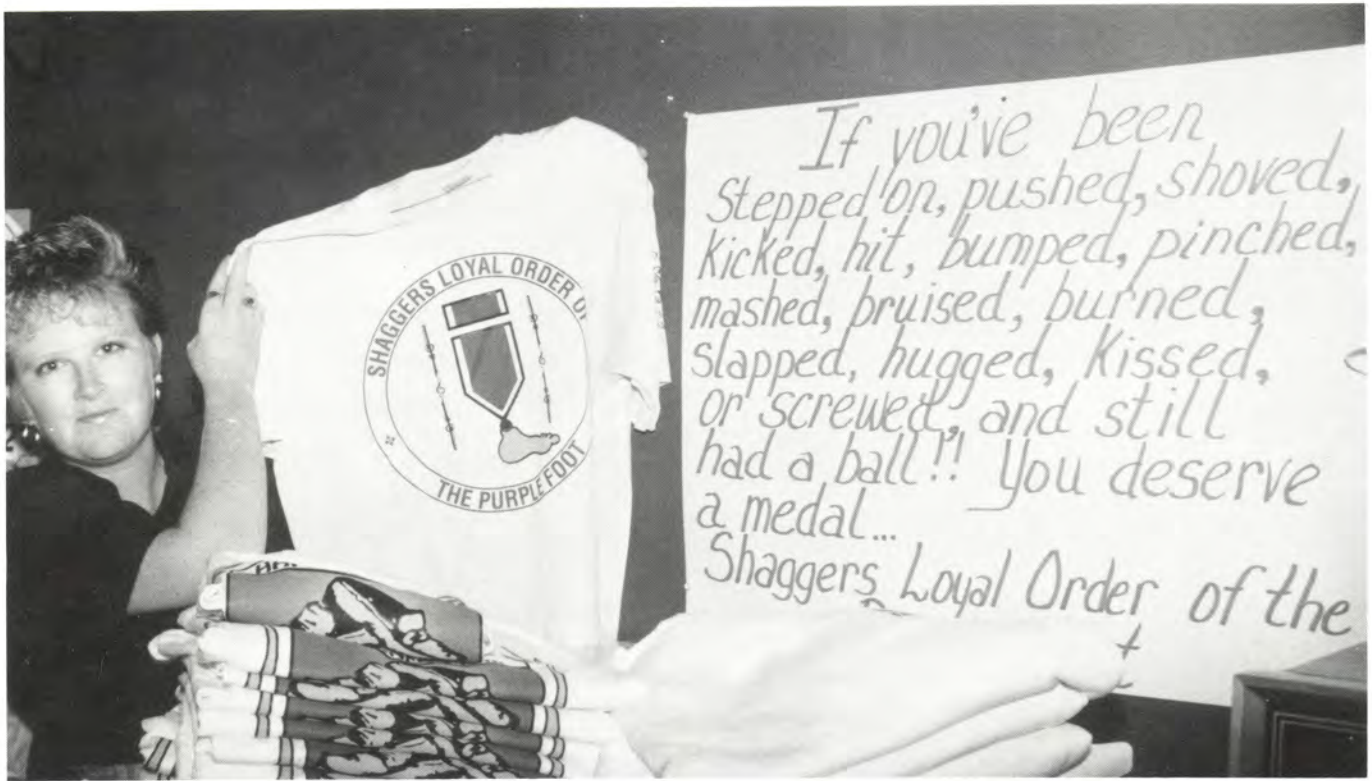 SHAGGERS LOYAL ORDER OF
THE PURPLE FOOT
If you've been
Stepped on, pushed, shoved,
Kicked, hit, bumped, pinched,
mashed, bruised, burned,
slapped, hugged, Kissed,
or screwed, and still
had a ball!! You deserve
a medal...
Shaggers Loyal Order of the